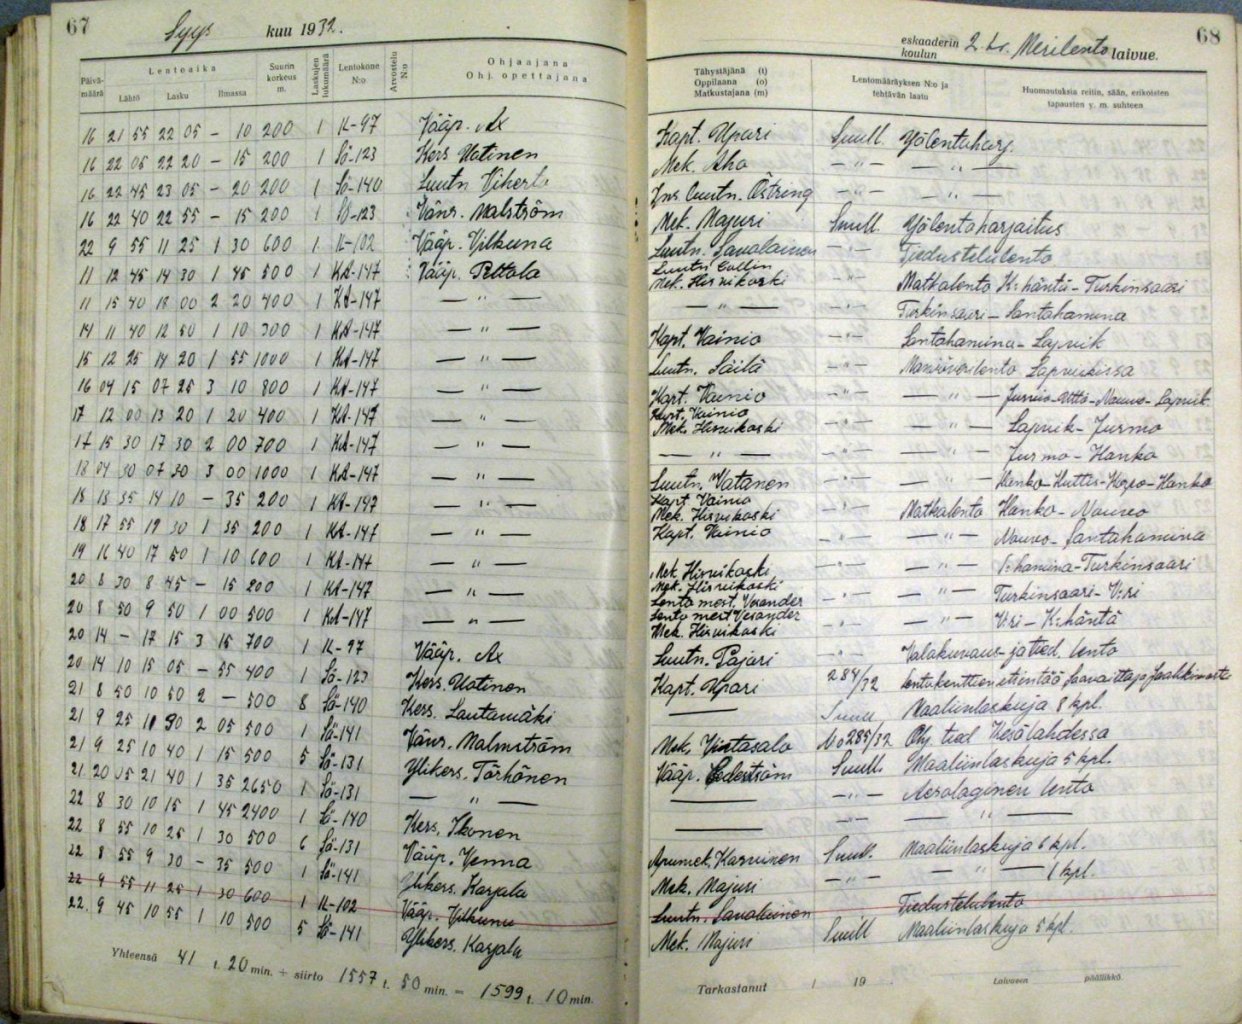 67
Syys kuu 1932.
Päivä-
määrä
Lentoaika
Lähtö Lasku Ilmassa
Suurin
korkeus
m.
Laskujen
lukumäärä
Lentokone
N:o
Arvostelu
N:o
Ohjaajana
Ohj. opettajana
16 21 55 22 05 – 10 200 1 K-97 Vääp. Ax
16 22 05 22 20 – 15 200 1 Sä-123 Kers. Uotinen
16 22 45 23 05 – 20 200 1 Sä-140 Luutn. Viherto
16 22 40 22 55 – 15 200 1 -123 Vänr. Malström
22 9 55 11 25 1 30 600 1 K-102 Vääp. Vilkuna
11 12 45 14 30 1 45 500 1 KA-147 Vääp. Peltola
11 15 40 18 00 2 20 400 1 KA-147 — " —
14 11 40 12 50 1 10 300 1 KA-147 — " —
15 12 25 14 20 1 55 1000 1 KA-147 — " —
16 04 15 07 25 3 10 800 1 KA-147 — " —
17 12 00 13 20 1 20 400 1 KA-147 — " —
17 15 30 17 30 2 00 700 1 KA-147 — " —
18 04 30 07 30 3 00 1000 1 KA-147 — " —
18 13 35 14 10 – 35 200 1 KA-147 — " —
18 17 55 19 30 1 35 200 1 KA-147 — " —
19 16 40 17 50 1 10 600 1 KA-147 — " —
20 8 30 8 45 – 15 200 1 KA-147 — " —
20 8 50 9 50 1 00 500 1 KA-147 — " —
20 14 – 17 15 3 15 700 1 K-97 Vääp. Ax
20 14 10 15 05 – 55 400 1 Sä-123 Kers. Uotinen
21 8 50 10 50 2 – 500 8 Sä-140 Kers. Lautamäki
21 9 25 11 30 2 05 500 1 Sä-141 Vänr. Malmström
21 9 25 10 40 1 15 500 5 Sä-131 Ylikers. Törhönen
21 20 05 21 40 1 35 2650 1 Sä-131 — " —
22 8 30 10 15 1 45 2400 1 Sä-140 Kers. Ikonen
22 8 55 10 25 1 30 500 6 Sä-131 Vääp. Venna
22 8 55 9 30 – 35 500 1 Sä-141 Ylikers. Karjala
22 9 55 11 25 1 30 600 1 K-102 Vääp. Vilkuna
22. 9 45 10 55 1 10 500 5 Sä-141 Ylikers. Karjala
Yhteensä 41 t. 20 min. + siirto 1557 t. 50 min. = 1599 t. 10 min.
68
eskaaderin
koulun
2. Lv. Merilento laivue.
Tähystäjänä (t)
Oppilaana (o)
Matkustajana (m)
Lentomääräyksen N:o ja
tehtävän laatu
Huomautuksia reitin, sään, erikoisten
tapausten y. m. suhteen
Kapt. Upari Suull. Yölentoharj.
Mek. Aho —"— — " —
Ins. luutn. Östring —"— — " —
Mek. Majuri Suull. Yölentoharjoitus
Luutn. Savolainen —"— Tiedustelulento
Luutn. Collin
Mek. Hirvikoski —"— Matkalento K:häntä – Turkinsaari
— " — Turkinsaari – Santahamina
Kapt. Vainio —"— Santahamina – Lapvik
Luutn. Säilä —"— Manööverilento Lapvikissa
Kapt. Vainio —"— — " — Jurmo-Uttö-Nauvo-Lapvik
Kapt. Vainio
Mek. Hirvikoski —"— — " — Lapvik – Jurmo
— " — —"— — " — Jurmo – Hanko
Luutn. Vatanen —"— — " — Hanko-Hittis-Korpo-Hanko
Kapt. Vainio
Mek. Hirvikoski —"— Matkalento Hanko – Nauvo
Kapt. Vainio —"— — " — Nauvo – Santahamina
Mek. Hirvikoski —"— — " — S:hamina-Turkinsaari
Mek. Hirvikoski
Lento mest. Vesander —"— — " — Turkinsaari – V:ri
Lento mest Vesander
Mek. Hirvikoski —"— — " — V:ri – K:häntä
Luutn. Pajari —"— Valokuvaus- ja tied. lento
Kapt. Upari 284/32 lentokenttien etsintää
— Suull. Maaliinlaskuja 8 kpl.
Mek. Viitasalo No 285/32 Ohj. tied Kesälahdessa
Vääp. Cederström Suull. Maaliinlaskuja 5 kpl.
— —"— Aerologinen lento
— —"— — " —
Asemek. Karvinen Suull. Maaliinlaskuja 6 kpl.
Mek. Majuri —"— — " — 1 kpl.
Luutn. Savolainen Tiedustelulento
Mek. Majuri Suull Maaliinlaskuja 5 kpl.
Tarkastanut / 19 Laivueen päällikkö.